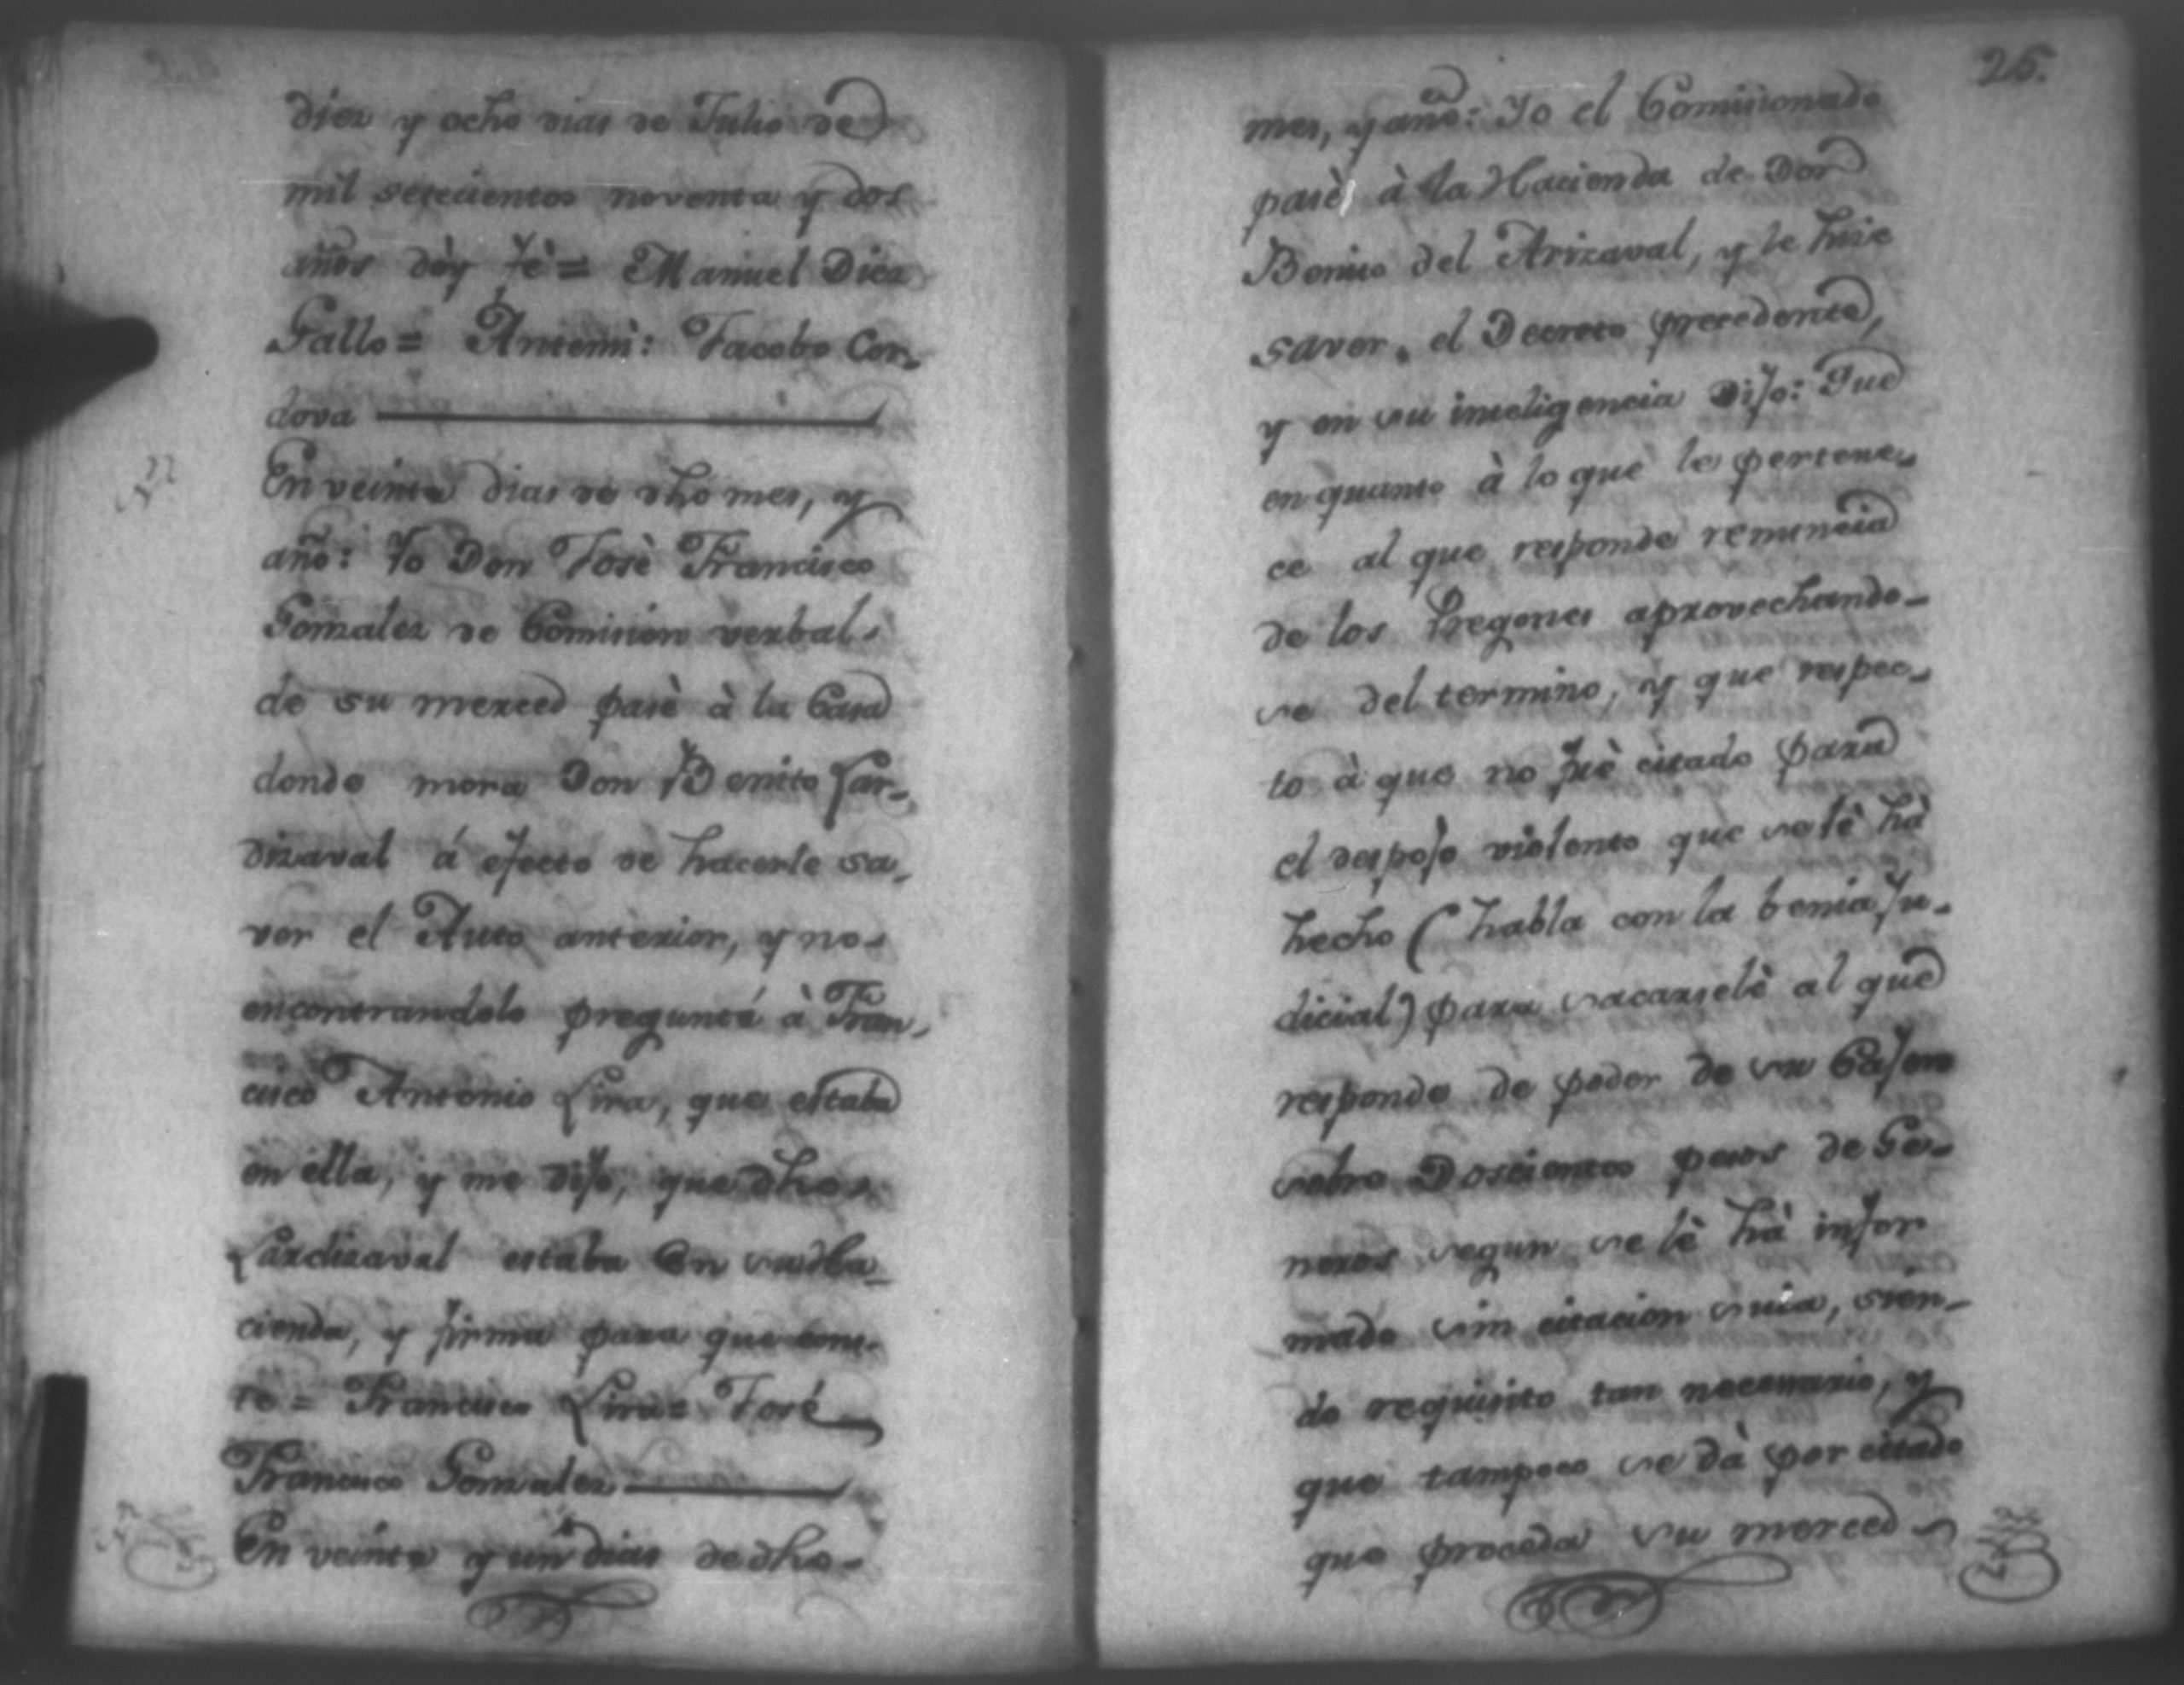 diez y ocho dias de Julio de
mil setecientos noventa y dos
años dòy fè = Manuel Diez
Gallo = Antemi: Jacobo Cor-
dova
En veinte dias de dho mes, y
año: Yo Don Josè Francisco
Gonzalez de Comision verbal
de su merced pasè à la Casa
donde mora Don Benito Lar-
dizaval á efecto de hacerle sa-
ver el Auto anterior, y no
encontrandolo pregunté à Fran-
cisco Antonio Lira, que estaba
en ella, y me dijo, que dho
Lardizaval estaba en su Ha-
cienda, y firma para que cons-
te = Francisco Lira = José
Francisco Gonzalez
En veinte y un dias de dho
25.
mes, y año: Yo el Comisionado
pasè à la Hacienda de Don
Benito del Arizaval, y le hize
saver el Decreto precedente,
y en su inteligencia Dijo: Que
en quanto à lo que le pertene-
ce al que responde renuncia
de los Pregones aprovechando-
se del termino, y que respec-
to à que no fuè citado para
el despojo violento que se lè hà
hecho (habla con la benia Ju-
dicial) para sacarselè al que
responde de poder de su Cajero
sobre Doscientos pesos de Ge-
neros segun se lè hà infor
mado sin citacion suia, sien-
do requisito tan necesario, y
que tampoco se dà por citado
que proceda su merced